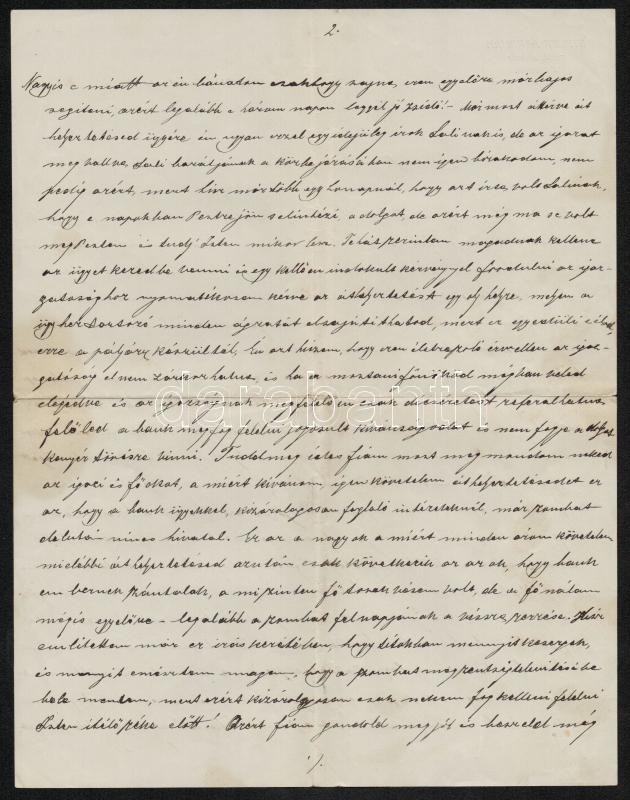 2.
Nagyis e miatt az én bánatom csakhogy sajna, ezen egyelőre már bajos
segiteni, azért legalább e három napon leggyél jó zsidó! – Már most áttérve át
helyertetésed ügyére én ugyan ezzel egyidejüleg irok Lalinak is, de az igazat
megvallva, Lali barátjának a közbejárásában nem igen bizakodom, nem
pedig azért, mert hisz már több egy honapnál, hogy azt irta volt Lalinak,
hogy e napokban Pestre jön s elintézi, a dolgot, de azért még ma se volt
meg Pesten és tudj' Isten mikor lesz. Tehát szerintem magadnak kellene
az ügyet kezedbe venni és egy kellően indokolt kérvénnyel fordulni az igaz-
gatósághoz nyomatékosan kérve az áthelyeztetést egy oly helyre, melyen a
ügyhez tartozó minden ágazatát elsajátithatod, mert ez egyesüli célod
erre a pályára készültél. Én azt hiszem, hogy ezen életrevaló érv ellen az igaz-
gatóság el nem zárkozhatna, és ha a mostani főnököd megvan veled
elégedve és az igazgatónak megfelelően csak dicséretest referálhatna
felőled a bank megfog felelni jogosult kivánságodat és nem fogja a dolgot
kenyér törésre vinni. Tudd meg édes fiam most megmondom neked
az igazi és főokot, a miért kivánom, igen követelem áthelyeztetésedet ez
az, hogy a bank ügyekkel, kizárólagosan foglaló intézeteknél, már szombat
délután nincs hivatal. Ez az a nagy ok a miért minden áron követelem
mielőbbi áthelyeztetésed azután csak következik az az ok, hogy bank
embernek szántalak, a mi szinten fő törekvésem volt, de a fő nálam
mégis egyelőre – legalább a szombat fél napjának a vissza szerzése. Már
emlitettem már ez irás keretében, hogy titokban mennyit keserget,
és mennyit emésztem magam, hogy a szombat megszentségtelenitésébe
bele mentem, mert ezért kizárólagosan csak nekem fog kelleni felelni
Isten itélőszéke előtt! Azért fiam gondold meg jól és beszéld még
./.
darabanth